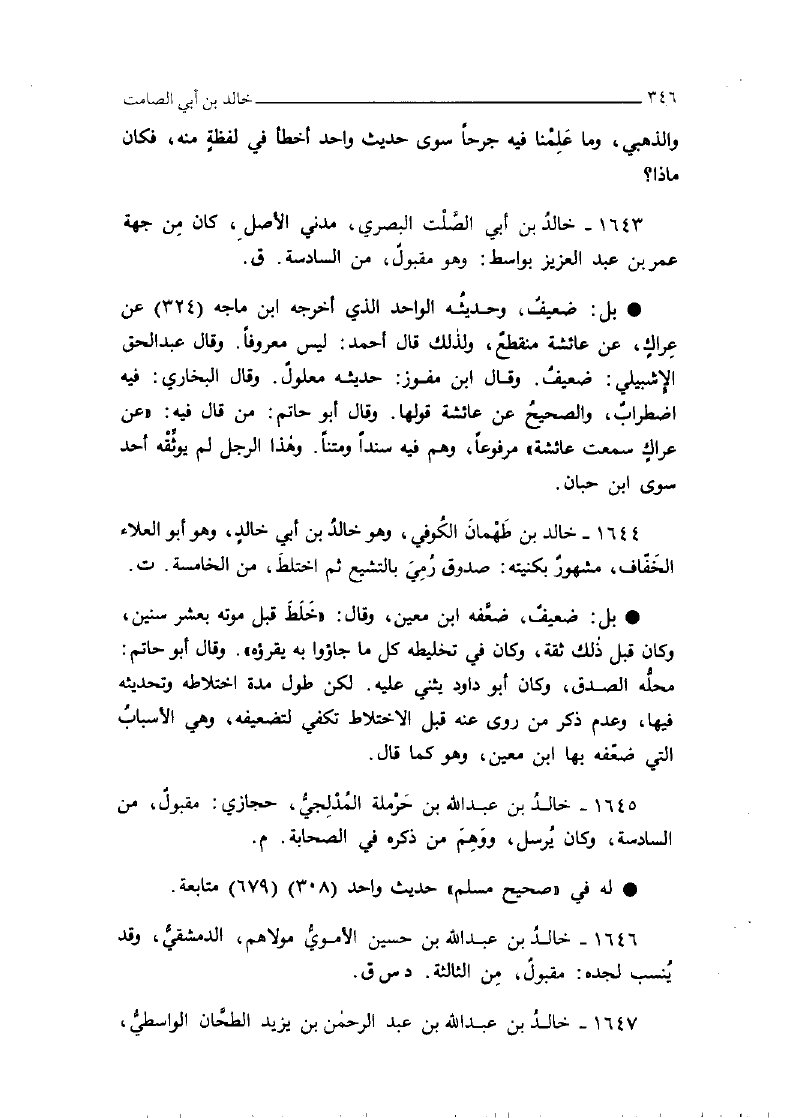 ٣٤٦ خالد بن أبي الصامت
والذهبي، وما عَلِمْنا فيه جرحاً سوى حديث واحد أخطأ في لفظةٍ منه، فكان
ماذا؟
١٦٤٣ ـ خالدُ بن أبي الصَّلْت البصري، مدني الأصل، كان مِن جهة
عمر بن عبد العزيز بواسط: وهو مقبولٌ، من السادسة. ق.
● بل: ضعيفٌ، وحديثُه الواحد الذي أخرجه ابن ماجه (٣٢٤) عن
عِراكٍ، عن عائشة منقطعٌ، ولذٰلك قال أحمد: ليس معروفاً. وقال عبدالحق
الإشبيلي: ضعيفٌ. وقال ابن مفوز: حديثه معلولٌ. وقال البخاري: فيه
اضطرابٌ، والصحيحُ عن عائشة قولها. وقال أبو حاتم: من قال فيه: «عن
عراكٍ سمعت عائشة» مرفوعاً، وهم فيه سنداً ومتناً. وهٰذا الرجل لم يوثِّقْه أحد
سوى ابن حبان.
١٦٤٤ ـ خالد بن طَهْمانَ الكُوفي، وهو خالدُ بن أبي خالدٍ، وهو أبو العلاء
الخَفَّاف، مشهورٌ بكنيته: صدوق رُمِيَ بالتشيع ثم اختلطَ، من الخامسة. ت.
● بل: ضعيفٌ، ضعَّفه ابن معين، وقال: «خَلَطَ قبل موته بعشر سنين،
وكان قبل ذٰلك ثقة، وكان في تخليطه كل ما جاؤوا به يقرؤه». وقال أبو حاتم:
محلُّه الصدق، وكان أبو داود يثني عليه. لكن طول مدة اختلاطه وتحديثه
فيها، وعدم ذكر من روى عنه قبل الاختلاط تكفي لتضعيفه، وهي الأسبابُ
التي ضعَّفه بها ابن معين، وهو كما قال.
١٦٤٥ ـ خالدُ بن عبدالله بن حَرْملة المُدْلِجيُّ، حجازي: مقبولٌ، من
السادسة، وكان يُرسل، ووَهِمَ من ذكره في الصحابة. م.
● له في «صحيح مسلم» حديث واحد (٣٠٨) (٦٧٩) متابعة.
١٦٤٦ ـ خالدُ بن عبدالله بن حسين الأمويُّ مولاهم، الدمشقيُّ، وقد
يُنسب لجده: مقبولٌ، مِن الثالثة. د س ق.
١٦٤٧ ـ خالدُ بن عبدالله بن عبد الرحمٰن بن يزيد الطحَّان الواسطيُّ،